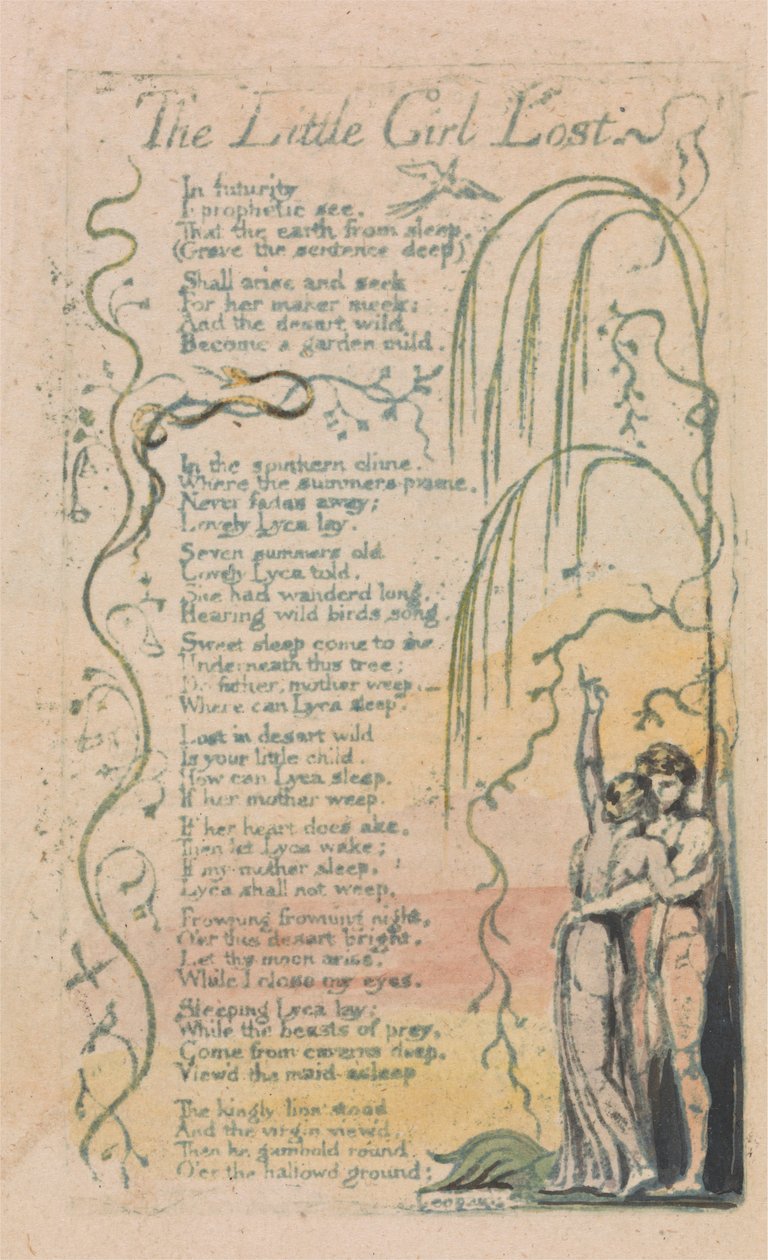 The Little Girl Lost
In futurity
I prophetic see,
That the earth from sleep,
(Grave the sentence deep)
Shall arise and seek
For her maker meek:
And the desart wild
Become a garden mild.
In the southern clime,
Where the summers prime,
Never fades away;
Lovely Lyca lay.
Seven summers old
Lovely Lyca told,
She had wanderd long,
Hearing wild birds song.
Sweet sleep come to me
Underneath this tree;
Do father, mother weep,—
Where can Lyca sleep.
Lost in desart wild
Is your little child.
How can Lyca sleep,
If her mother weep.
If her heart does ake,
Then let Lyca wake;
If my mother sleep,
Lyca shall not weep.
Frowning frowning night,
O'er this desart bright,
Let thy moon arise,
While I close my eyes.
Sleeping Lyca lay;
While the beasts of prey,
Come from caverns deep,
View'd the maid asleep
The kingly lion stood
And the virgin view'd,
Then he gambold round
O'er the hallowd ground;